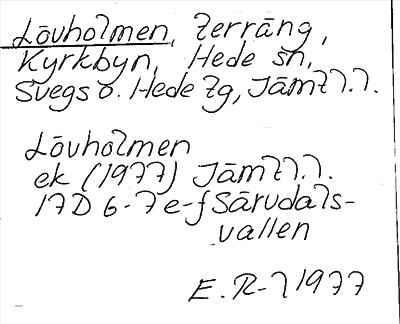 Lövholmen, terräng,
Kyrkbyn, Hede sn,
Svegs o. Hede tg, Jämtl.l.
Lövholmen
ek (1977) Jämtl.l.
17D 6-7e-f Särvdals-
vallen
E. R-l 1977